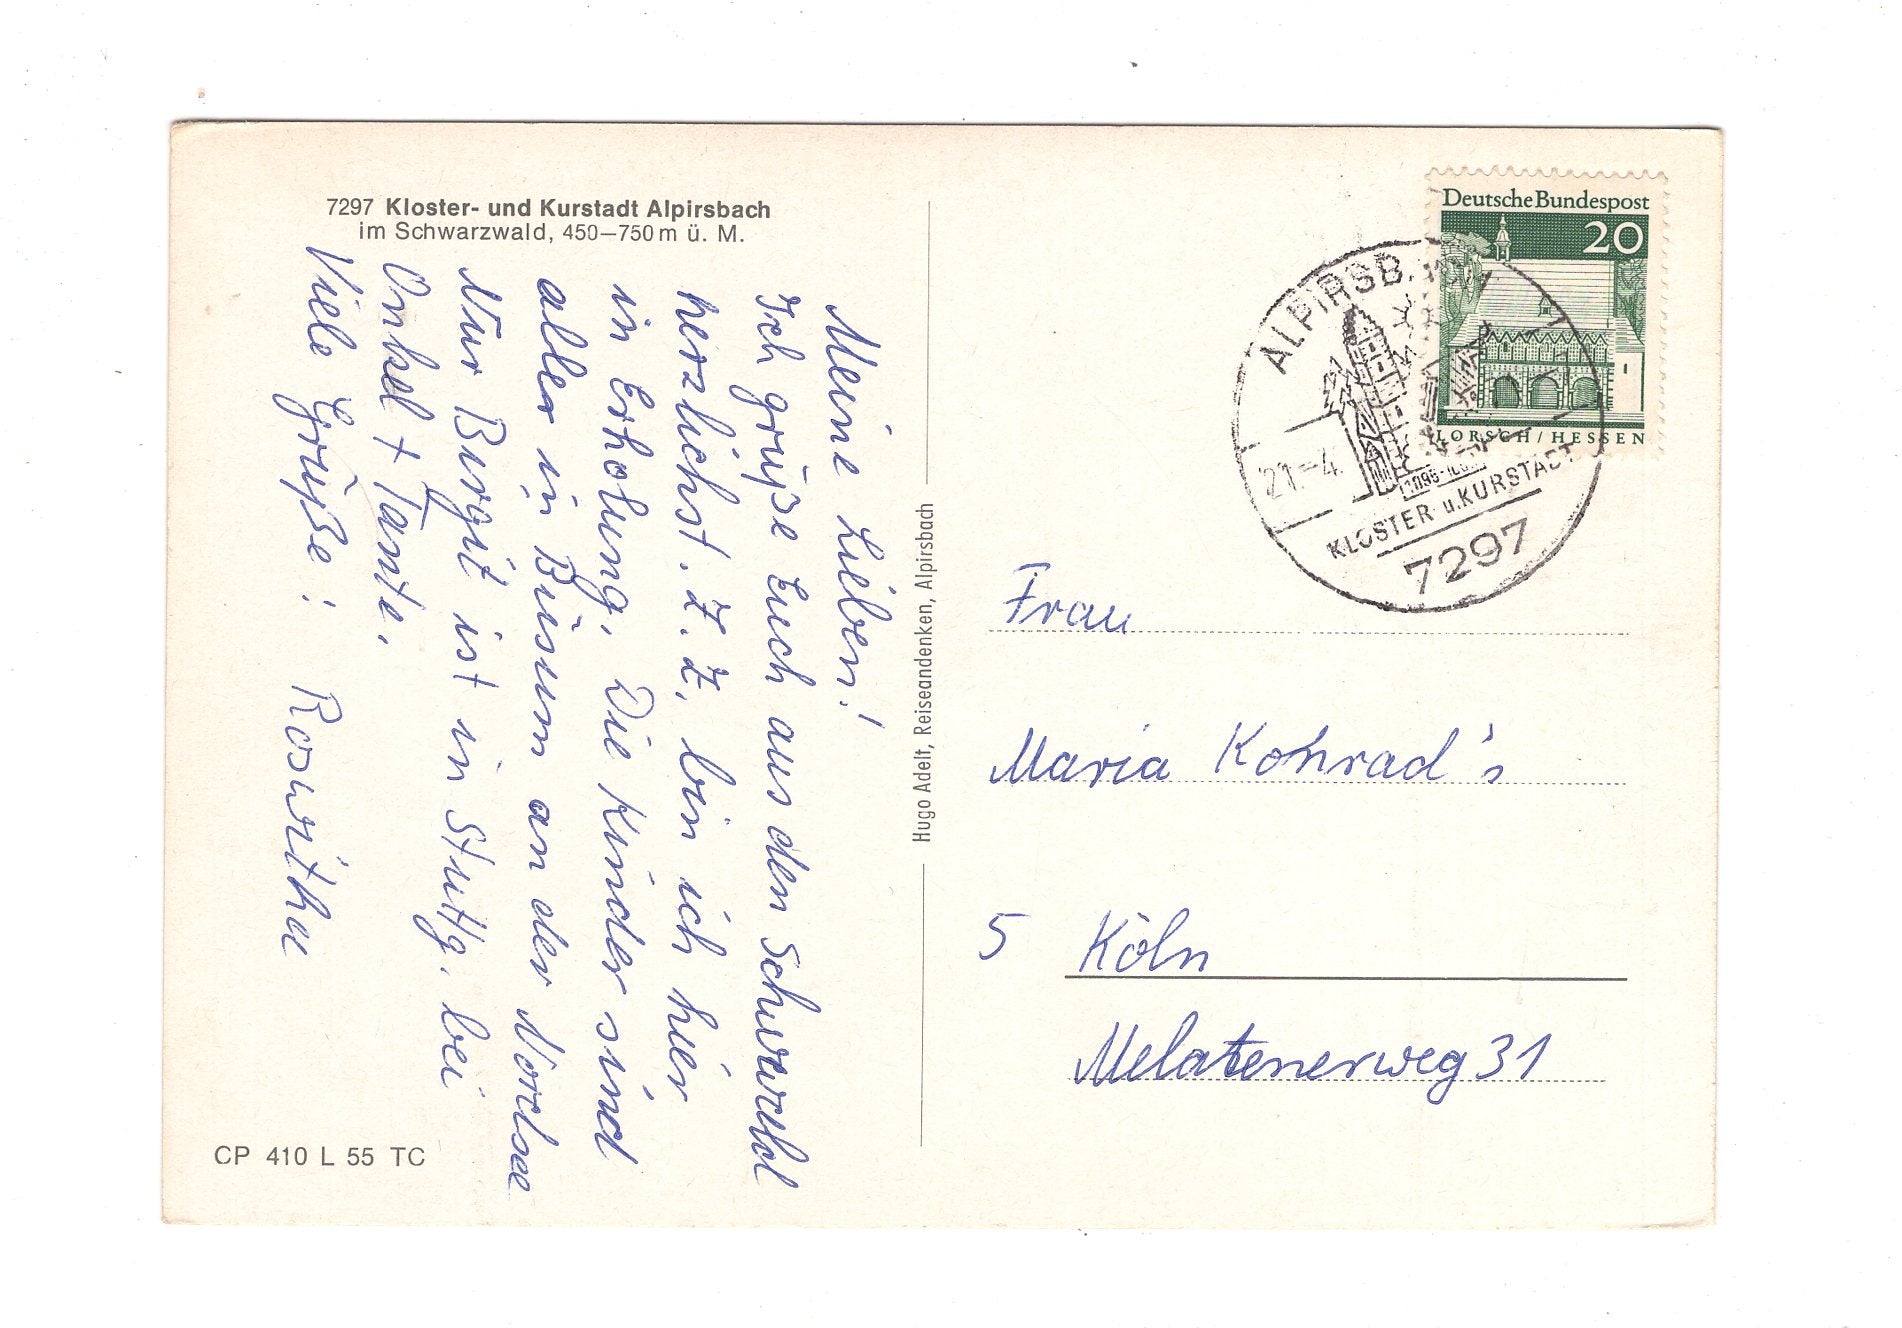 7297 Kloster- und Kurstadt Alpirsbach
im Schwarzwald, 450–750 m ü. M.
Meine Lieben!
Ich grüße Euch aus den Schwarzwald
herzlichst. Z. Z. bin ich hier
in Erholung. Die Kinder sind
aller in Büsum an der Nordsee
Nur Burgit ist in Stuttg. bei
Onkel + Tante.
Viele Grüße: Roswitha
CP 410 L 55 TC
Hugo Adelt, Reiseandenken, Alpirsbach
Deutsche Bundespost
20
LORSCH/HESSEN
21.-4.
KLOSTER u. KURSTADT
7297
Frau
Maria Konrad's
5 Köln
Melatenerweg 31